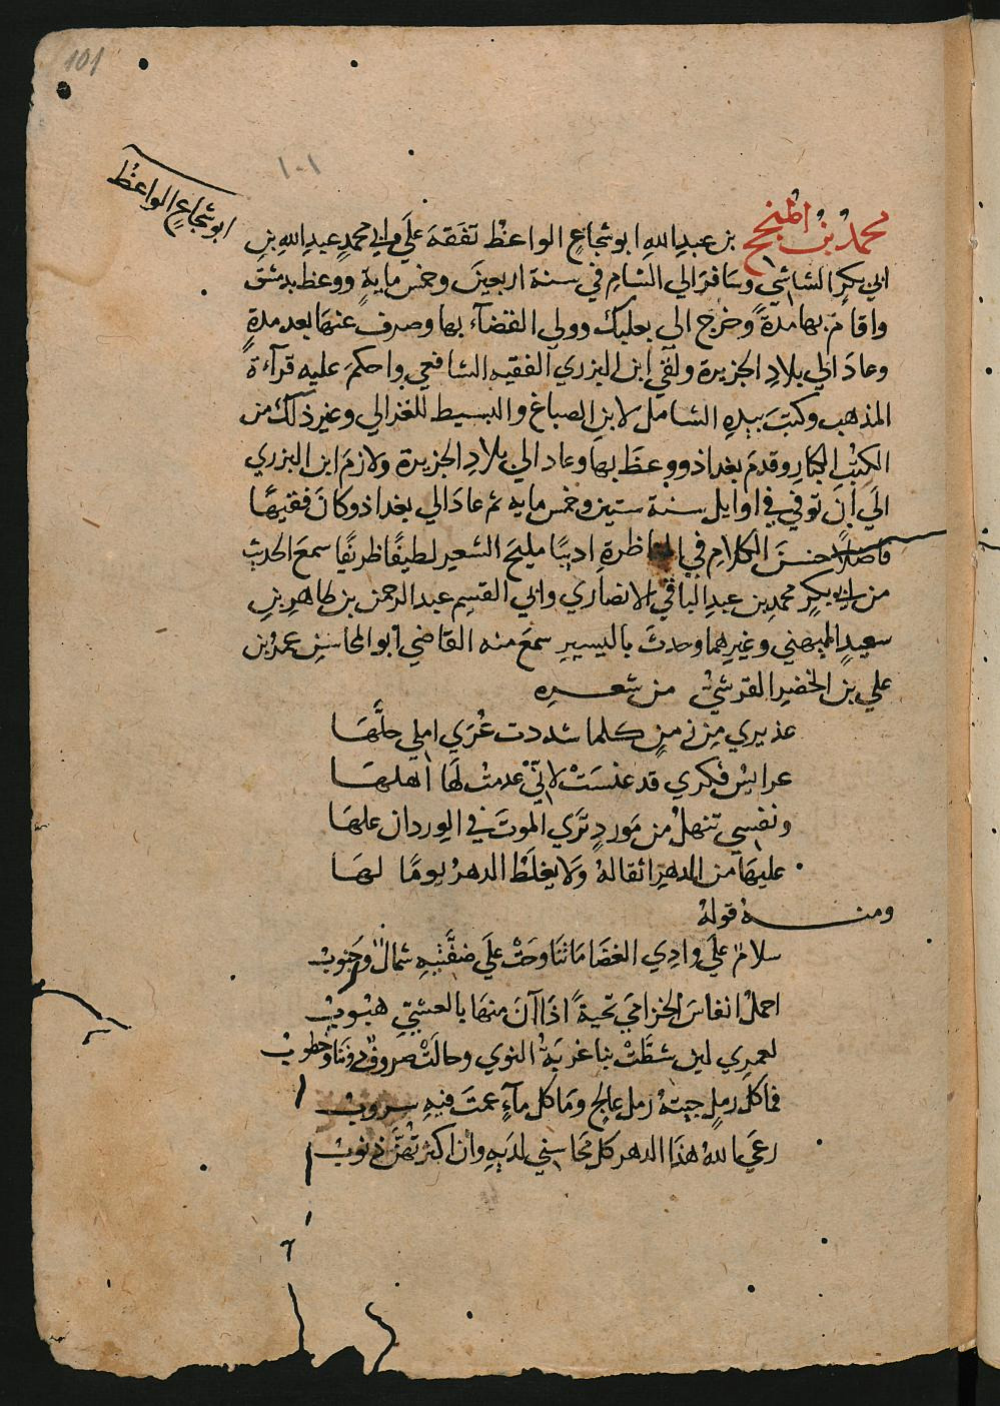 101
١٠١
ابو شجاع الواعظ
محمد بن المنجح بن عبدِ اللهِ ابو شجاعٍ الواعظ تفقه علَي ابي محمدٍ عبدِ اللهِ بنِ
ابي بكرٍ الشاشي وسافرَ الي الشامِ في سنة اربعينَ وخمس مايةٍ ووعظ بدمشق
واقامَ بها مدةً وخرَج الي بعلبكَ وولي القضآء بها وصرف عنهَا بعد مدةٍ
وعادَ الي بلادِ الجزيرة ولقي ابن البزري الفقيه الشافعي واحكمَ عليه قرآءةَ
المذهب وكتبَ بيدِهِ الشامل لابنِ الصباغ والبسيط للغزالي وغير ذلكَ من
الكتُبِ الكبارِ وقدمَ بغداذ ووعظَ بها وعاد الي بلادِ الجزيرة ولازمَ ابن البزري
الَي أنَ توفي في اوايل سنة ستين وخمس مايه ثم عادَ الي بغداذ وكانَ فقيهًا
فاضلًا حسنَ الكلامِ في المناظرةِ اديبًا مليحَ الشعر لطيفًا ظريفًا سمعَ الحديث
من ابي بكرٍ محمدِ بن عبدِ الباقي الانصاري وابي القسِم عبد الرحمن بن طاهرِ بنِ
سعيدٍ الميهني وغيرهما وحدثَ باليسيرِ سمعَ منه القاضي ابو المحاسنِ عمرُ بن
علي بن الخضرِ القرشيُ من شعرِه
عذيري من زمنٍ كلما شددت عُرَي املي حلَّهَا
عرايسُ فكري قد عنسَتْ لانّي عدمتُ لهَا أهلهَا
ونفسي تنهلُ من مَوردٍ تَرَي الموتَ في الوِرد ان علهَا
عليهَا من الدهرِ اثقالهُ وَلا يغلَطُ الدهرُ يومًا لهَا
ومنهُ قولهُ
سلامٌ علَي وادِي الغضَا مَا تناوحَتْ علَي ضفَّتيهِ شمالٌ وجَنوبُ
احملُ انفاسَ الخزامَي تحيةً اذَا آنَ منهَا بالعشيّ هبُوبُ
لعمرِي لين شطَّتْ بنا غربَةُ النوي وحالَتْ صروفٌ دونَنا وخطوبُ
فما كل رملٍ جيتهُ رمل عالجٍ ومَا كل مآءٍ عمتَ فيهِ سروبُ
رعَي اللهُ هذَا الدهر كل محاسني لديهِ وان اكثرتُهنَّ ذنوبُ